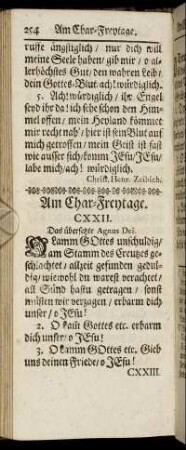 254 Am Char-Freytage.
ruffe ängstiglich / nur dich will
meine Seele haben / gib mir / o al-
lerhöchstes Gut / den wahren Leib /
dein Gottes-Blut. ach! würdiglich.
5. Ach! würdiglich / ihr Engel
seyd ihr da! ich sehe schon den Him-
mel offen / mein Heyland kömmet
mir recht nah' / hier ist sein Blut auf
mich getroffen / mein Geist ist fast
wie ausser sich / komm JEsu / JEsu /
labe mich / ach! würdiglich.
Christ. Henr. Zeibich.
Am Char-Freytage.
CXXII.
Das übersetzte Agnus Dei.
O Lamm GOttes unschuldig /
am Stamm des Creutzes ge-
schlachtet / allzeit gefunden gedul-
dig / wiewohl du warest verachtet /
all Sünd hastu getragen / sonst
müsten wir verzagen / erbarm dich
unser / o JEsu!
2. O Lam̃ Gottes etc. erbarm
dich unser / o JEsu!
3. O Lamm GOttes etc. Gieb
uns deinen Friede / o JEsu!
CXXIII.